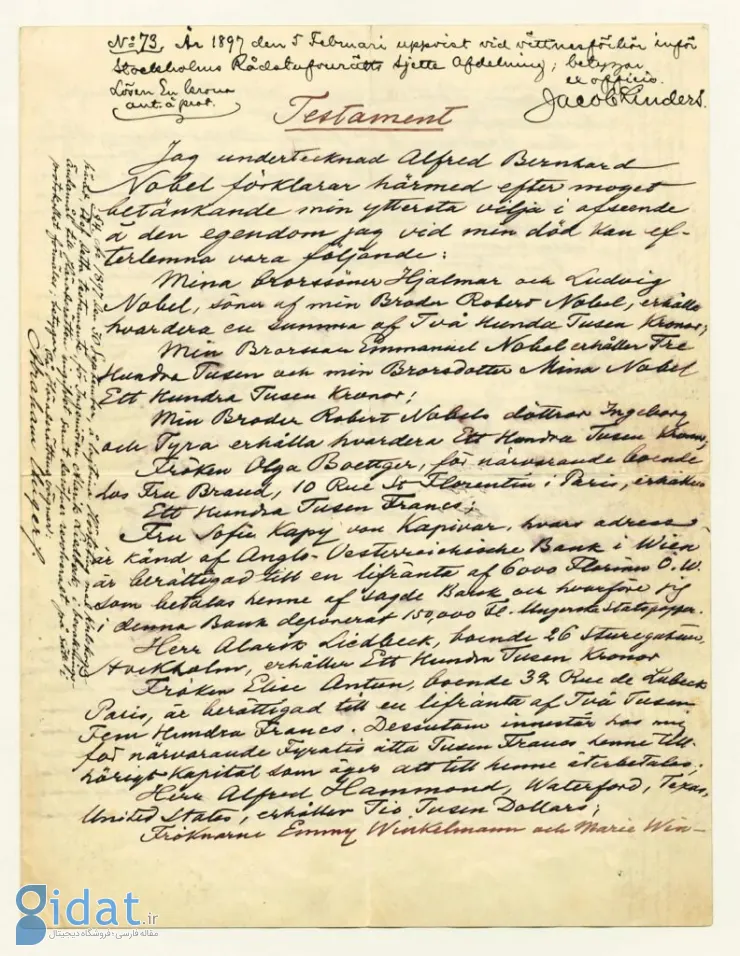 No 73, År 1897 den 5 Februari uppvist vid vittnesförhör inför
Stockholms Rådstufvurätts sjette Afdelning; betygar
Lösen En krona
ex officio.
ant. å prot.
Testament
Jag undertecknad Alfred Bernhard
Nobel förklarar härmed efter moget
betänkande min yttersta vilja i afseende
å den egendom jag vid min död kan ef-
terlemna vara följande:
Mina brorssöner Hjalmar och Ludvig
Nobel, söner af min Broder Robert Nobel, erhålla
hvardera en summa af Två Hundra Tusen Kronor;
Min Brorsson Emmanuel Nobel erhåller Tre
Hundra Tusen och min Brorsdotter Mina Nobel
Ett Hundra Tusen Kronor;
Min Broder Robert Nobels döttrar Ingeborg
och Tyra erhålla hvardera Ett Hundra Tusen Kronor;
Fröken Olga Boettger, för närvarande boende
hos Fru Brand, 10 Rue St Florentin i Paris, erhåller
Ett Hundra Tusen Francs;
Fru Sofie Kapy von Kapivar, hvars adress
är känd af Anglo-Oesterreichische Bank i Wien
är berättigad till en lifränta af 6000 Florins Ö.W.
som betalas henne af sagde Bank och hvarföre jag
i denna Bank deponerat 150,000 Fl. Ungerska Statspapper.
Herr Alarik Liedbeck, boende 26 Sturegatan,
Stockholm, erhåller Ett Hundra Tusen Kronor
Fröken Elise Antun, boende 32 Rue de Lubeck
Paris, är berättigad till en lifränta af Två Tusen
Fem Hundra Francs. Dessutom innestår hos mig
för närvarande Fyratio åtta Tusen Francs henne till-
hörigt Kapital som äger att till henne återbetalas;
Herr Alfred Hammond, Waterford, Texas,
United States, erhåller Tio Tusen Dollars;
Fröknarne Emmy Winkelmann och Marie Win-
År 1897 den 30 September, å lagtima
härad, blef detta testamente för Ingeniören Alarik Liedbeck, i bevaknings-
ändamål till Häradsrätten ingifvet samt
protokollet förmäles, betygar, På Häradsrättens vägnar,
gidat.ir
مقاله فارسی؛ فروشگاه دیجیتال